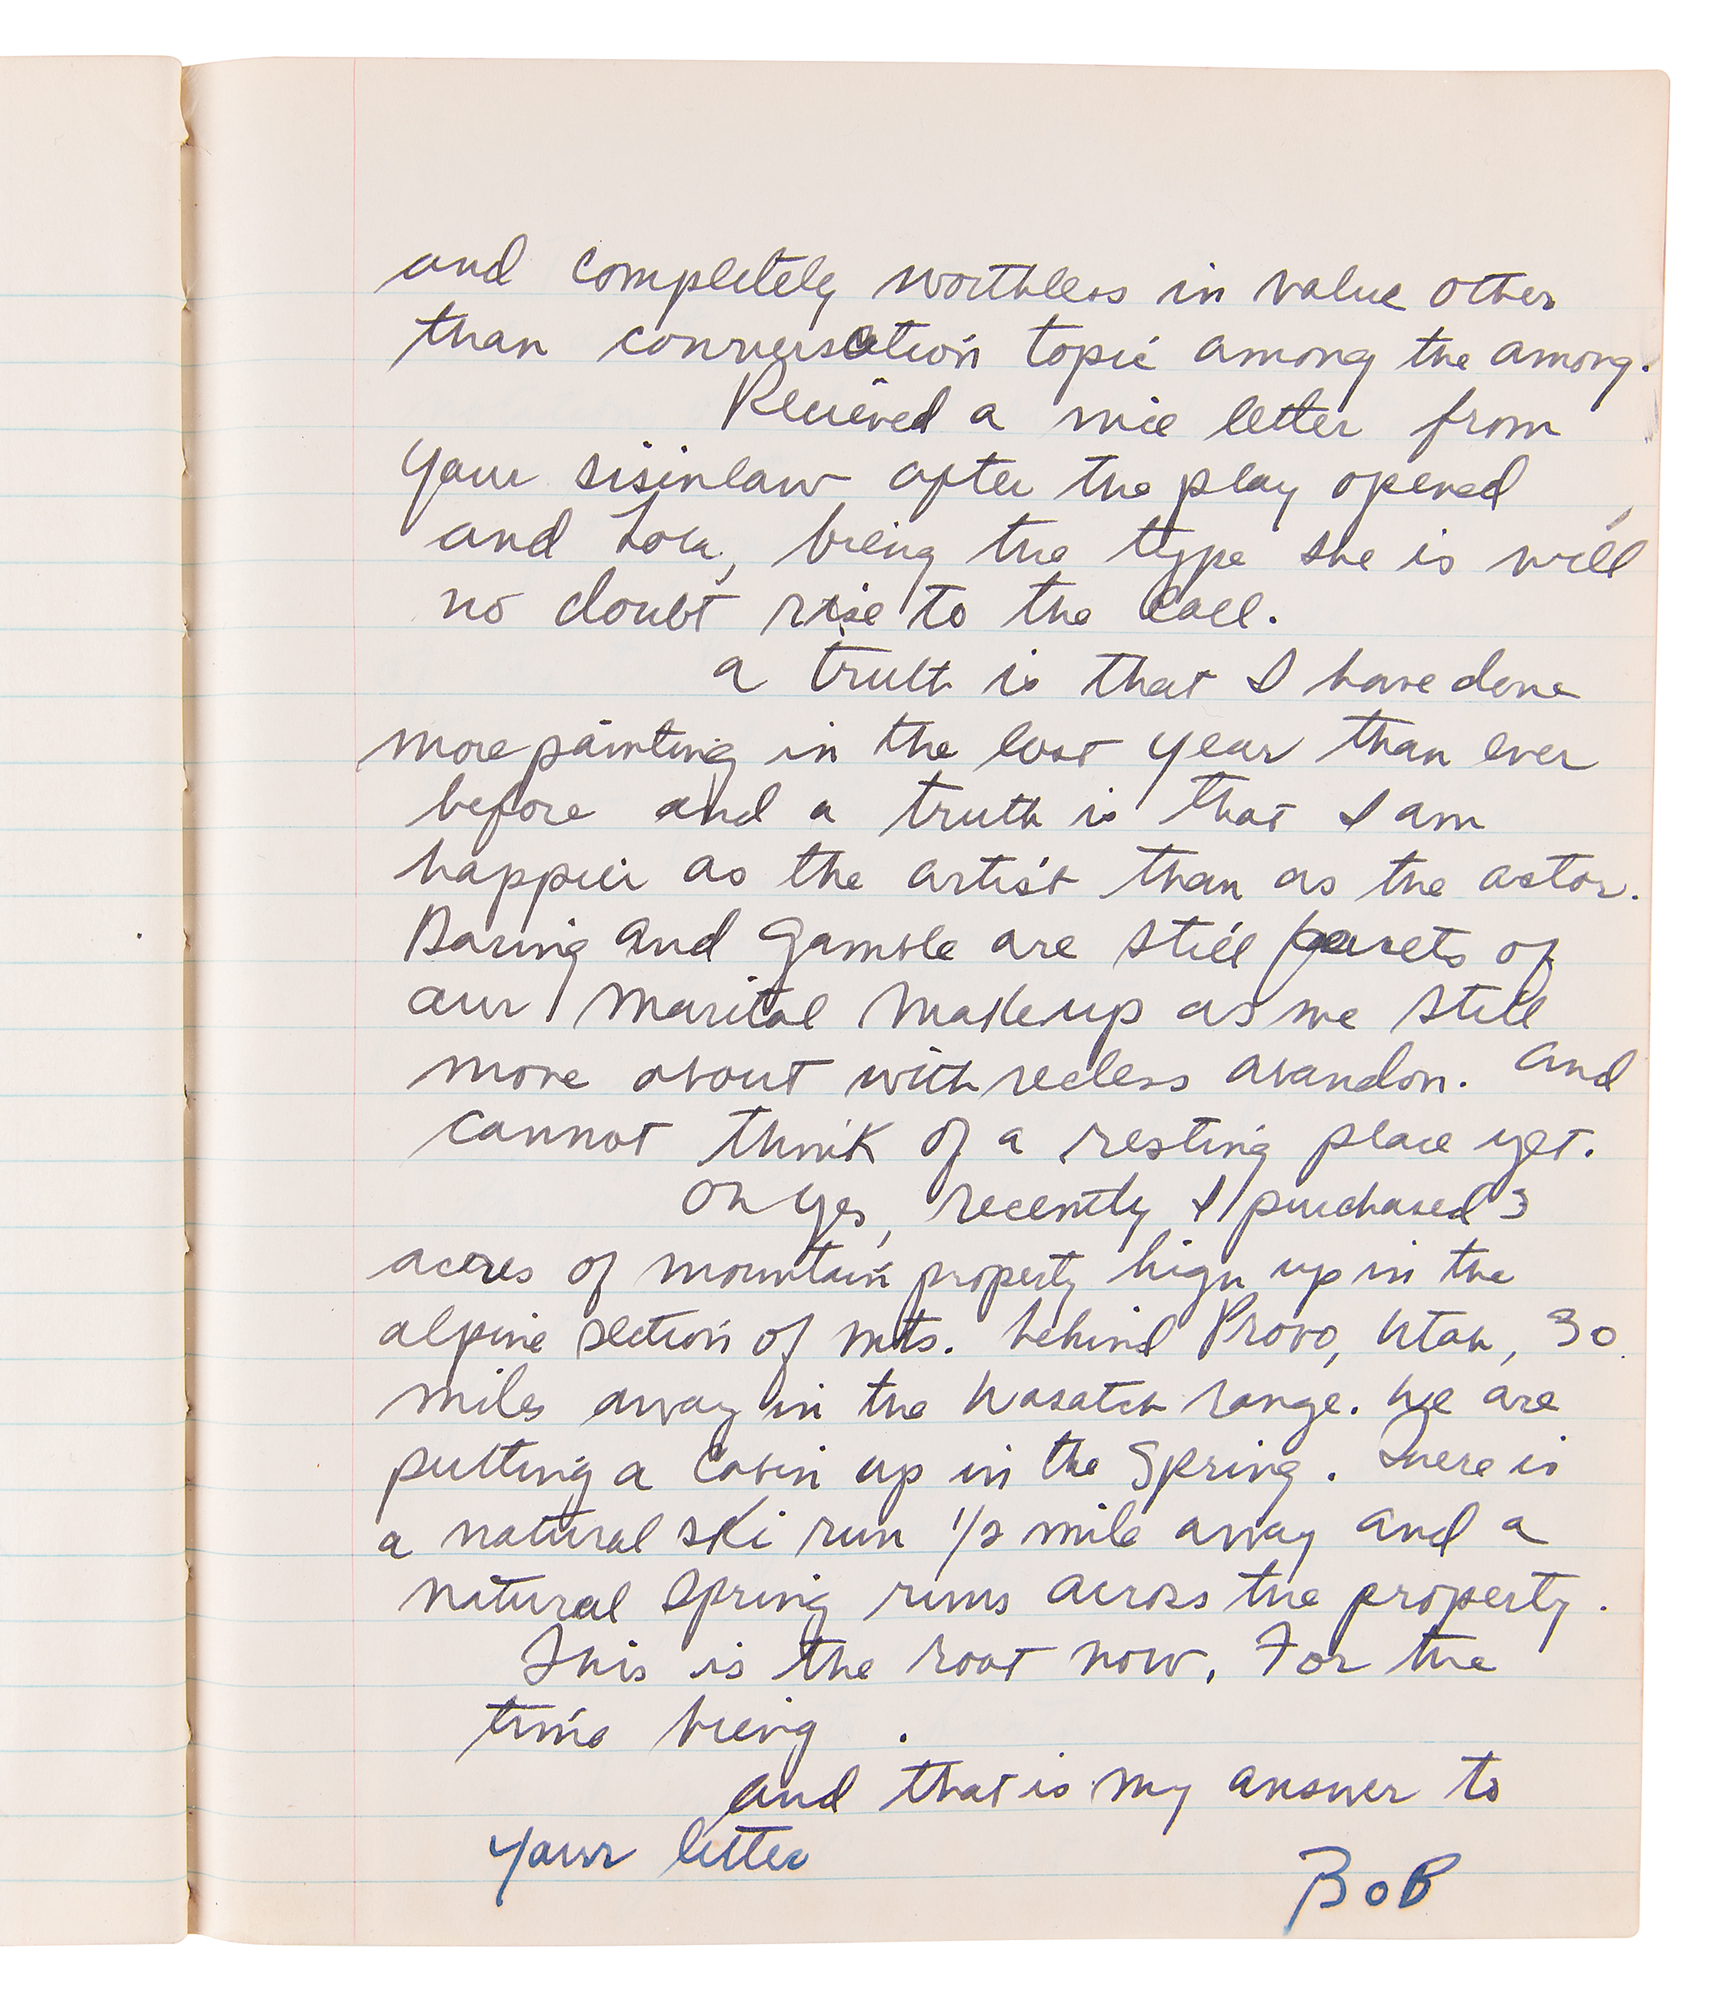 and completely worthless in value other
than conversation topic among the among.
Recieved a nice letter from
your sisinlaw after the play opened
and Lola, being the type she is will
no doubt rise to the call.
a truth is that I have done
more painting in the last year than ever
before and a truth is that I am
happier as the artist than as the actor.
Daring and Gamble are still facets of
our marital makeup as we still
move about with recless abandon. And
cannot think of a resting place yet.
Oh yes, recently I purchased 3
acres of mountain property high up in the
alpine section of mts. behind Provo, Utah, 30
miles away in the Wasatch range. We are
putting a cabin up in the Spring. There is
a natural ski run 1/2 mile away and a
natural spring runs across the property.
This is the root now. For the
time being.
and that is my answer to
your letter
BoB